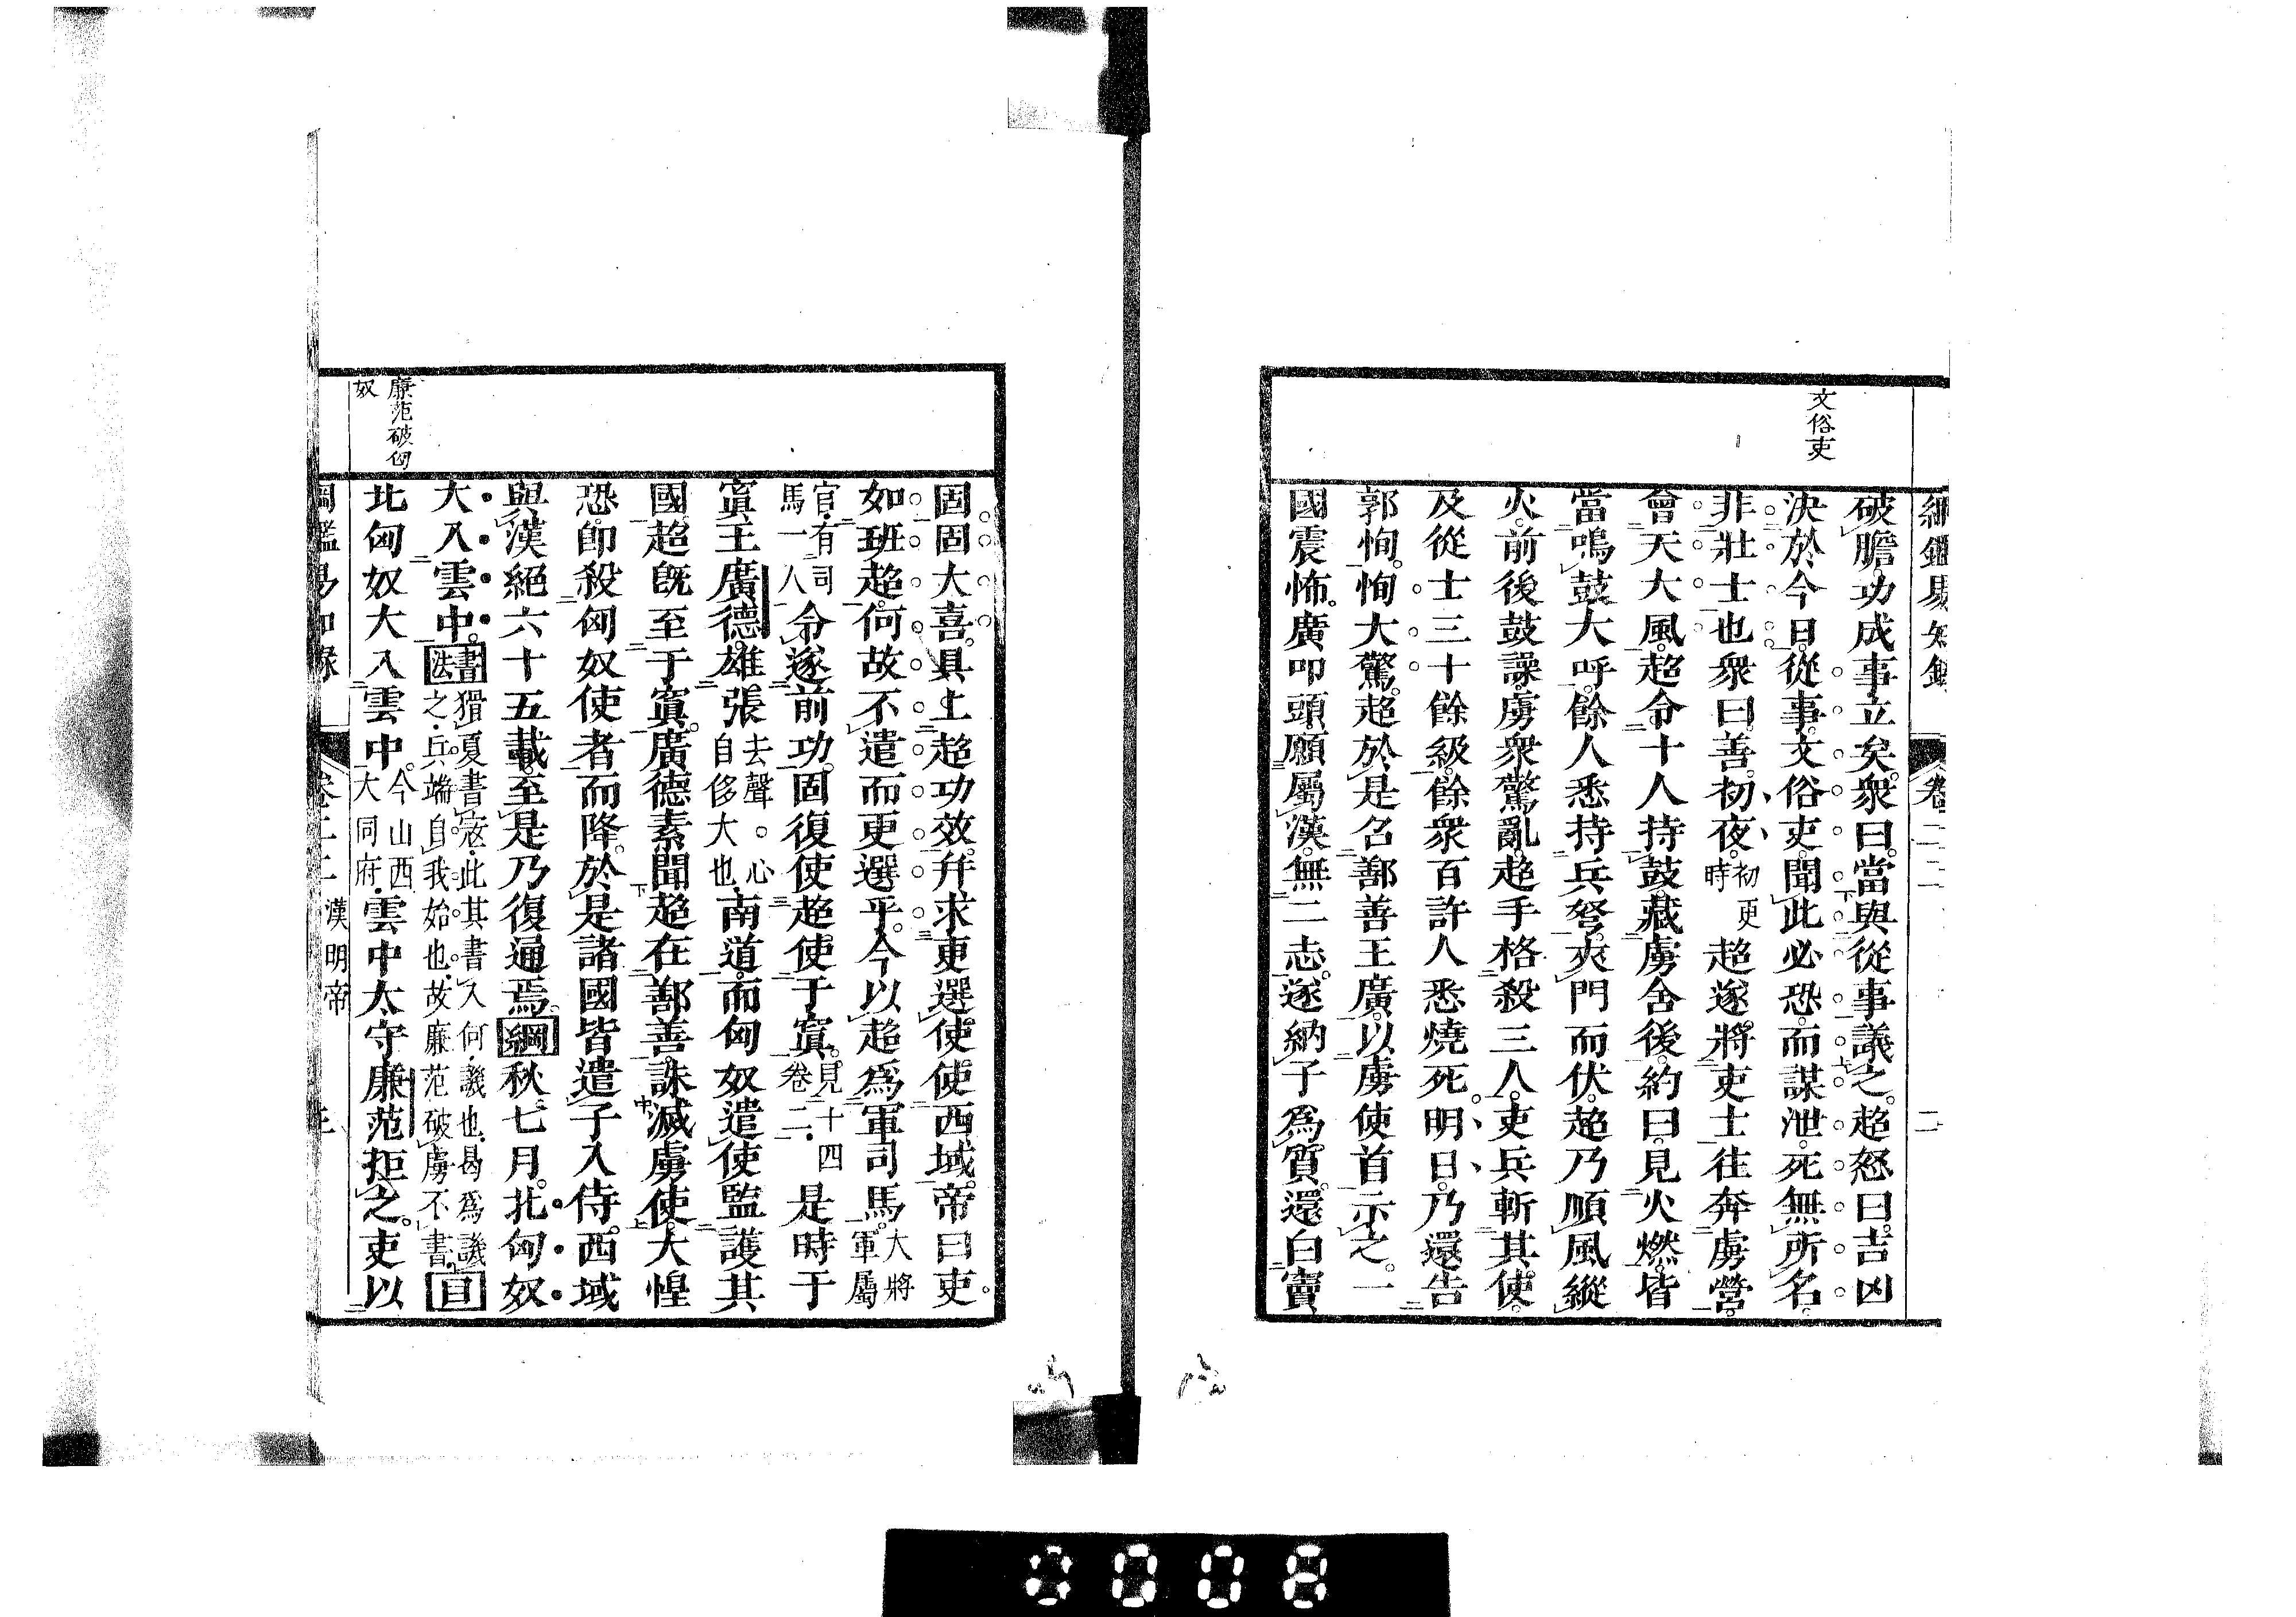 綱鑑易知錄 卷二二 二
文俗吏
破膽功成事立矣衆曰當與從事議之超怒曰吉凶
決於今日從事文俗吏聞此必恐而謀泄死無所名
非壯士也衆曰善初夜初更時超遂將吏士往奔虜營
會天大風超令十人持鼓藏虜舍後約曰見火燃皆
當鳴鼓大呼餘人悉持兵弩夾門而伏超乃順風縱
火前後鼓譟虜衆驚亂超手格殺三人吏兵斬其使
及從士三十餘級餘衆百許人悉燒死明日乃還告
郭恂恂大驚超於是召鄯善王廣以虜使首示之一
國震怖廣叩頭願屬漢無二志遂納子爲質還白竇
固固大喜具上超功效幷求更選使使西域帝曰吏
如班超何故不遣而更選乎今以超爲軍司馬大將軍屬
官有司馬一人令遂前功固復使超使于窴見十四卷二是時于
窴王廣德雄張去聲。心自侈大也南道而匈奴遣使監護其
國超旣至于窴廣德素聞超在鄯善誅滅虜使大惶
恐卽殺匈奴使者而降於是諸國皆遣子入侍西域
與漢絕六十五載至是乃復通焉綱秋七月北匈奴
大入雲中書法猾夏書寇此其書入何譏也曷爲譏之兵端自我始也故廉范破虜不書目
廉范破匈
奴
北匈奴大入雲中今山西大同府雲中太守廉范拒之吏以
綱鑑易知錄 卷二二 漢明帝
0008